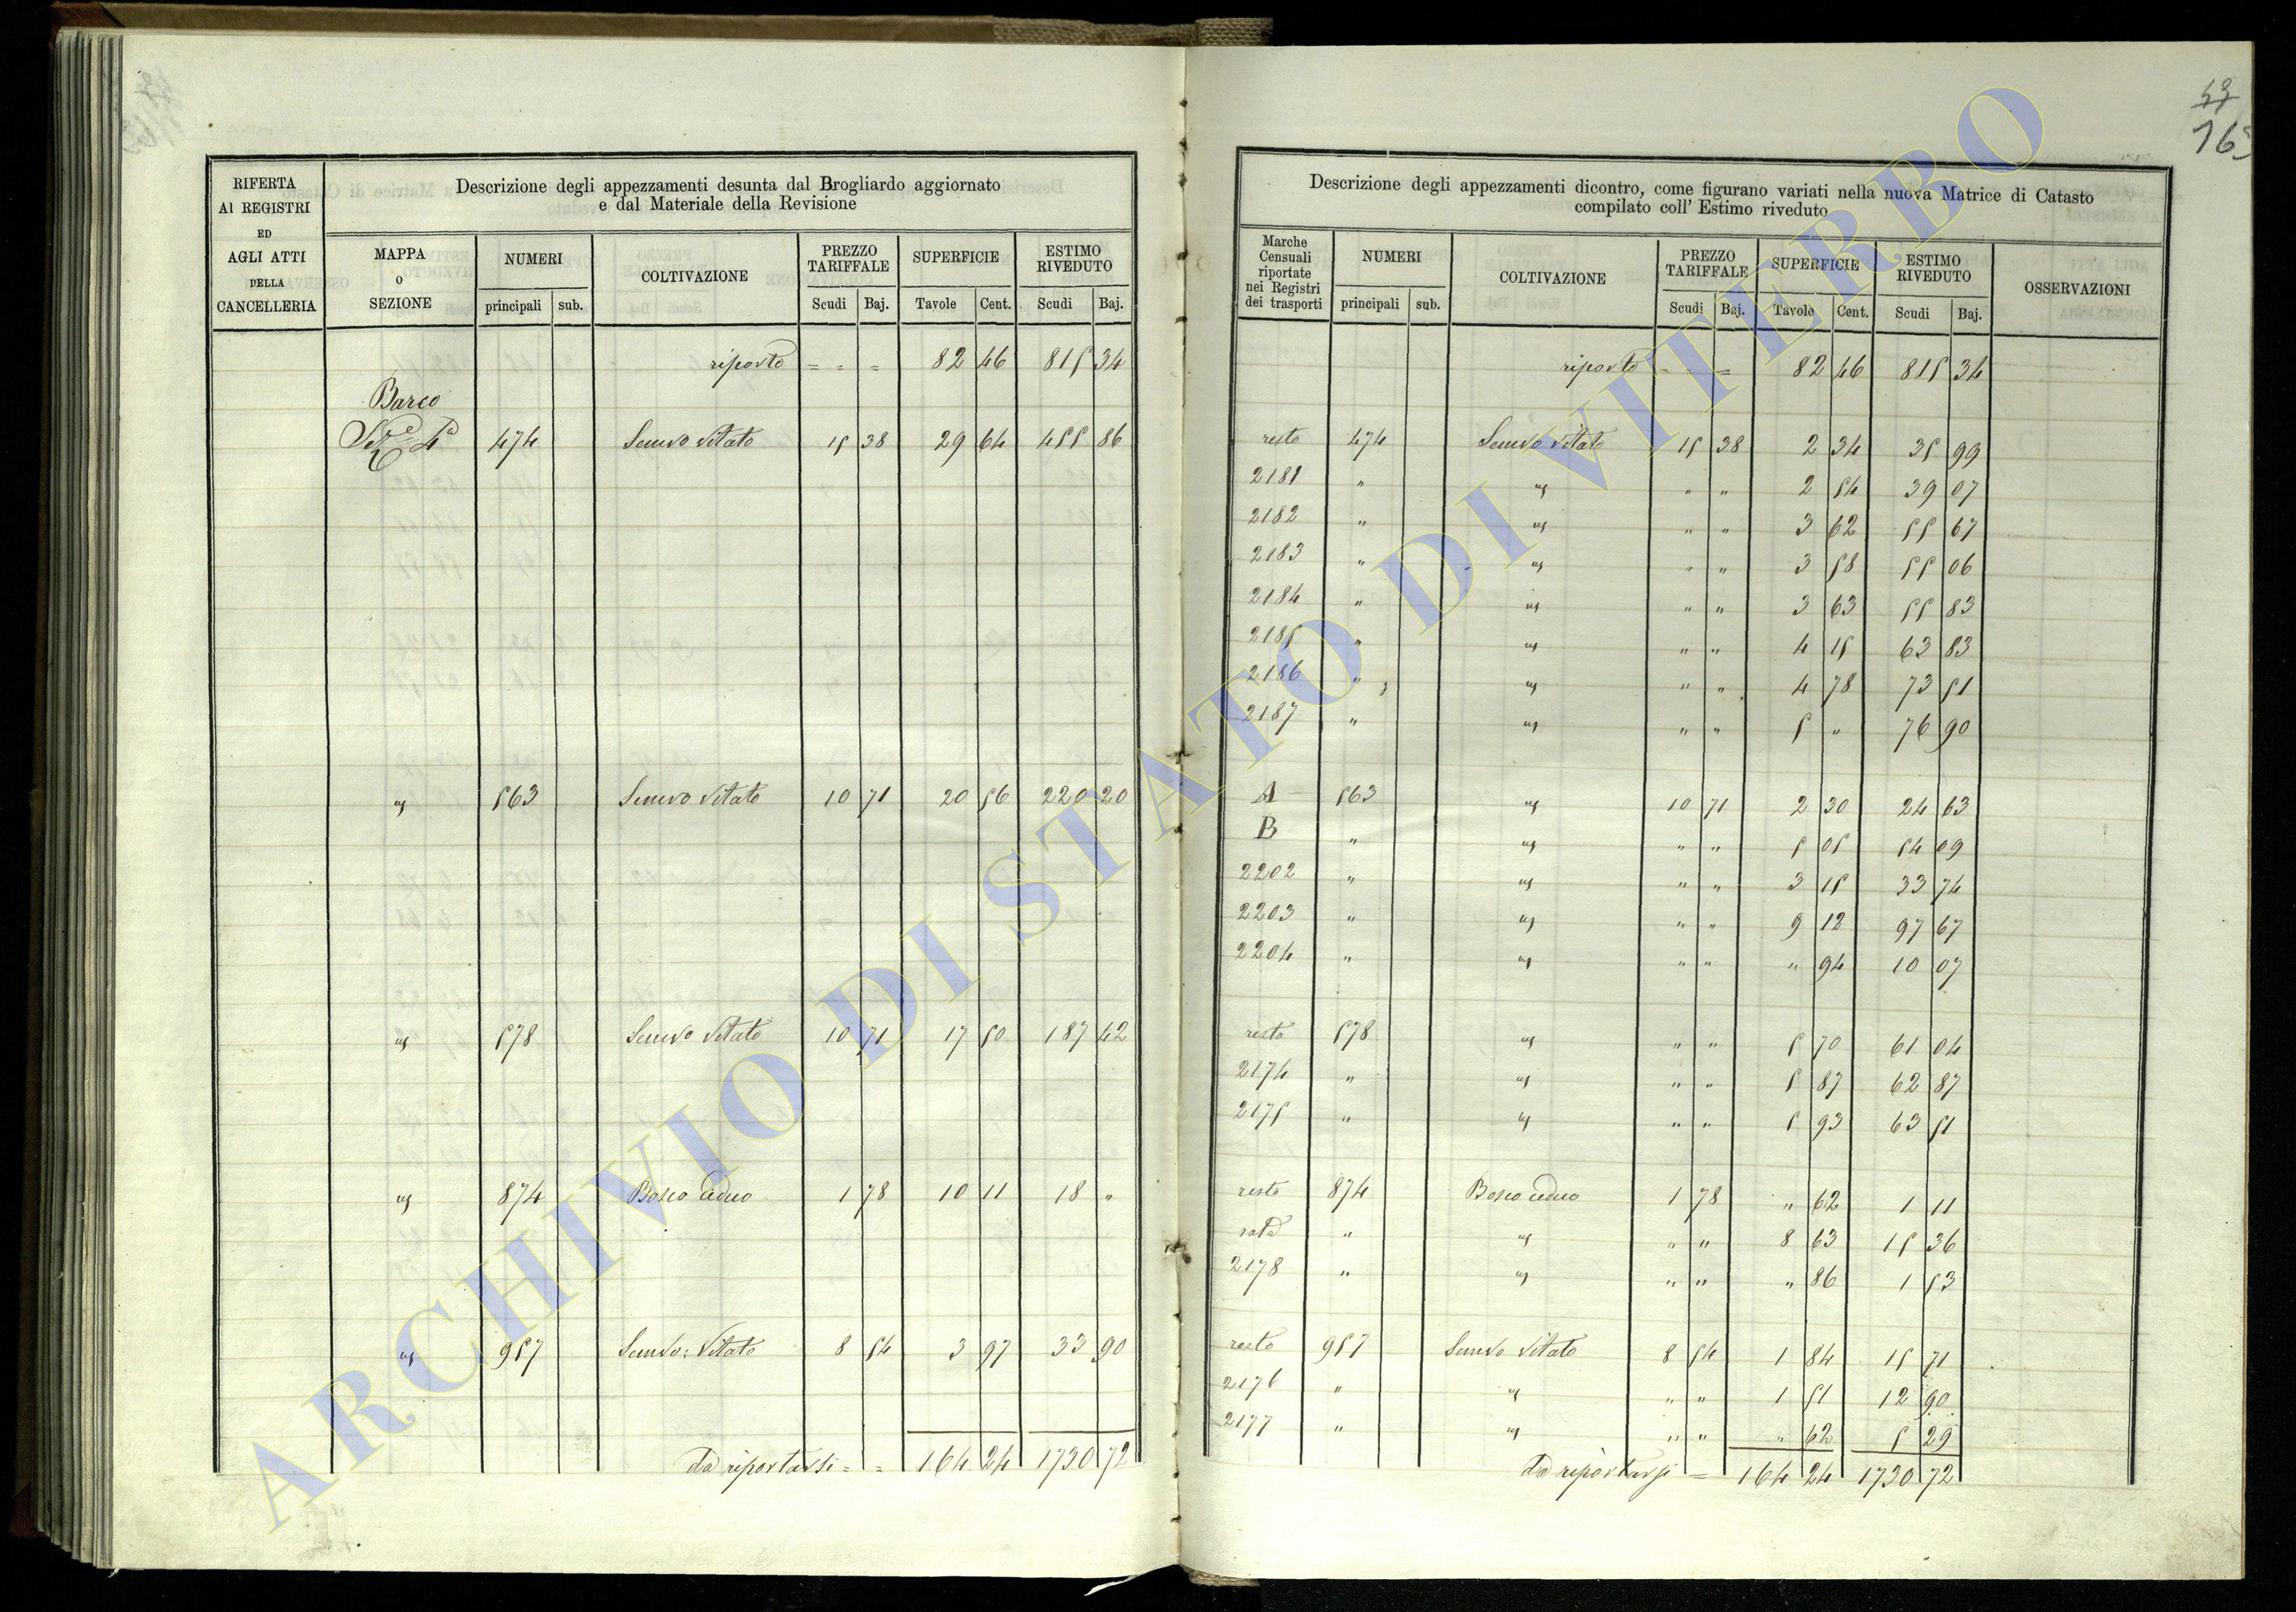 RIFERTA
AI REGISTRI
ED
AGLI ATTI
DELLA
CANCELLERIA
Descrizione degli appezzamenti desunta dal Brogliardo aggiornato
e dal Materiale della Revisione
MAPPA
o
SEZIONE
NUMERI
principali sub.
COLTIVAZIONE
PREZZO
TARIFFALE
Scudi Baj.
SUPERFICIE
Tavole Cent.
ESTIMO
RIVEDUTO
Scudi Baj.
riporto = = = 82 46 815 34
Barco
Sez.e 4a 474 Semvo Vitato 15 38 29 64 455 86
" 563 Semvo Vitato 10 71 20 56 220 20
" 578 Semvo Vitato 10 71 17 50 187 42
" 874 Bosco ceduo 1 78 10 11 18 "
" 957 Semvo: Vitato 8 54 3 97 33 90
da riportarsi = = 164 24 1730 72
163
Descrizione degli appezzamenti dicontro, come figurano variati nella nuova Matrice di Catasto
compilato coll' Estimo riveduto
Marche
Censuali
riportate
nei Registri
dei trasporti
NUMERI
principali sub.
COLTIVAZIONE
PREZZO
TARIFFALE
Scudi Baj.
SUPERFICIE
Tavole Cent.
ESTIMO
RIVEDUTO
Scudi Baj.
OSSERVAZIONI
riporto = - = 82 46 815 34
resto 474 Semvo Vitato 15 38 2 34 35 99
2181 " " " " 2 54 39 07
2182 " " " " 3 62 55 67
2183 " " " " 3 58 55 06
2184 " " " " 3 63 55 83
2185 " " " " 4 15 63 83
2186 " " " " 4 78 73 51
2187 " " " " 5 " 76 90
A 563 " 10 71 2 30 24 63
B " " " " 5 05 54 09
2202 " " " " 3 15 33 74
2203 " " " " 9 12 97 67
2204 " " " " " 94 10 07
resto 578 " " " 5 70 61 04
2174 " " " " 5 87 62 87
2175 " " " " 5 93 63 51
resto 874 Bosco ceduo 1 78 " 62 1 11
rata " " " " 8 63 15 36
2178 " " " " " 86 1 53
resto 957 Semvo Vitato 8 54 1 84 15 71
2176 " " " " 1 51 12 90
2177 " " " " " 62 5 29
da riportarsi = 164 24 1730 72
ARCHIVIO DI STATO DI VITERBO